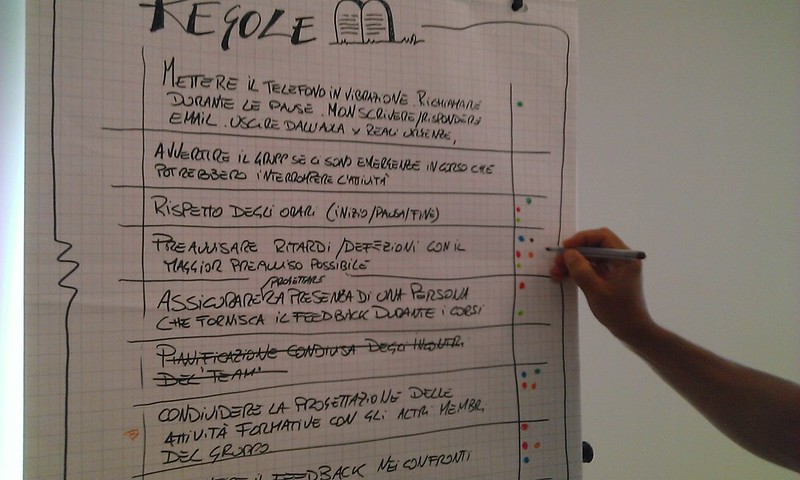 REGOLE
METTERE IL TELEFONO IN VIBRAZIONE. RICHIAMARE
DURANTE LE PAUSE. NON SCRIVERE/RISPONDERE
EMAIL. USCIRE DALL'AULA X REALI URGENZE,
AVVERTIRE IL GRUPPO SE CI SONO EMERGENZE IN CORSO CHE
POTREBBERO INTERROMPERE L'ATTIVITÀ
RISPETTO DEGLI ORARI (INIZIO/PAUSA/FINE)
PREAVVISARE RITARDI/DEFEZIONI CON IL
MAGGIOR PREAVVISO POSSIBILE
PROGETTARE
ASSICURARE LA PRESENZA DI UNA PERSONA
CHE FORNISCA IL FEEDBACK DURANTE I CORSI
PIANIFICAZIONE CONDIVISA DEGLI INCONTRI
DEL "TEAM"
CONDIVIDERE LA PROGETTAZIONE DELLE
ATTIVITÀ FORMATIVE CON GLI ALTRI MEMBRI
DEL GRUPPO
IL FEEDBACK NEI CONFRONTI